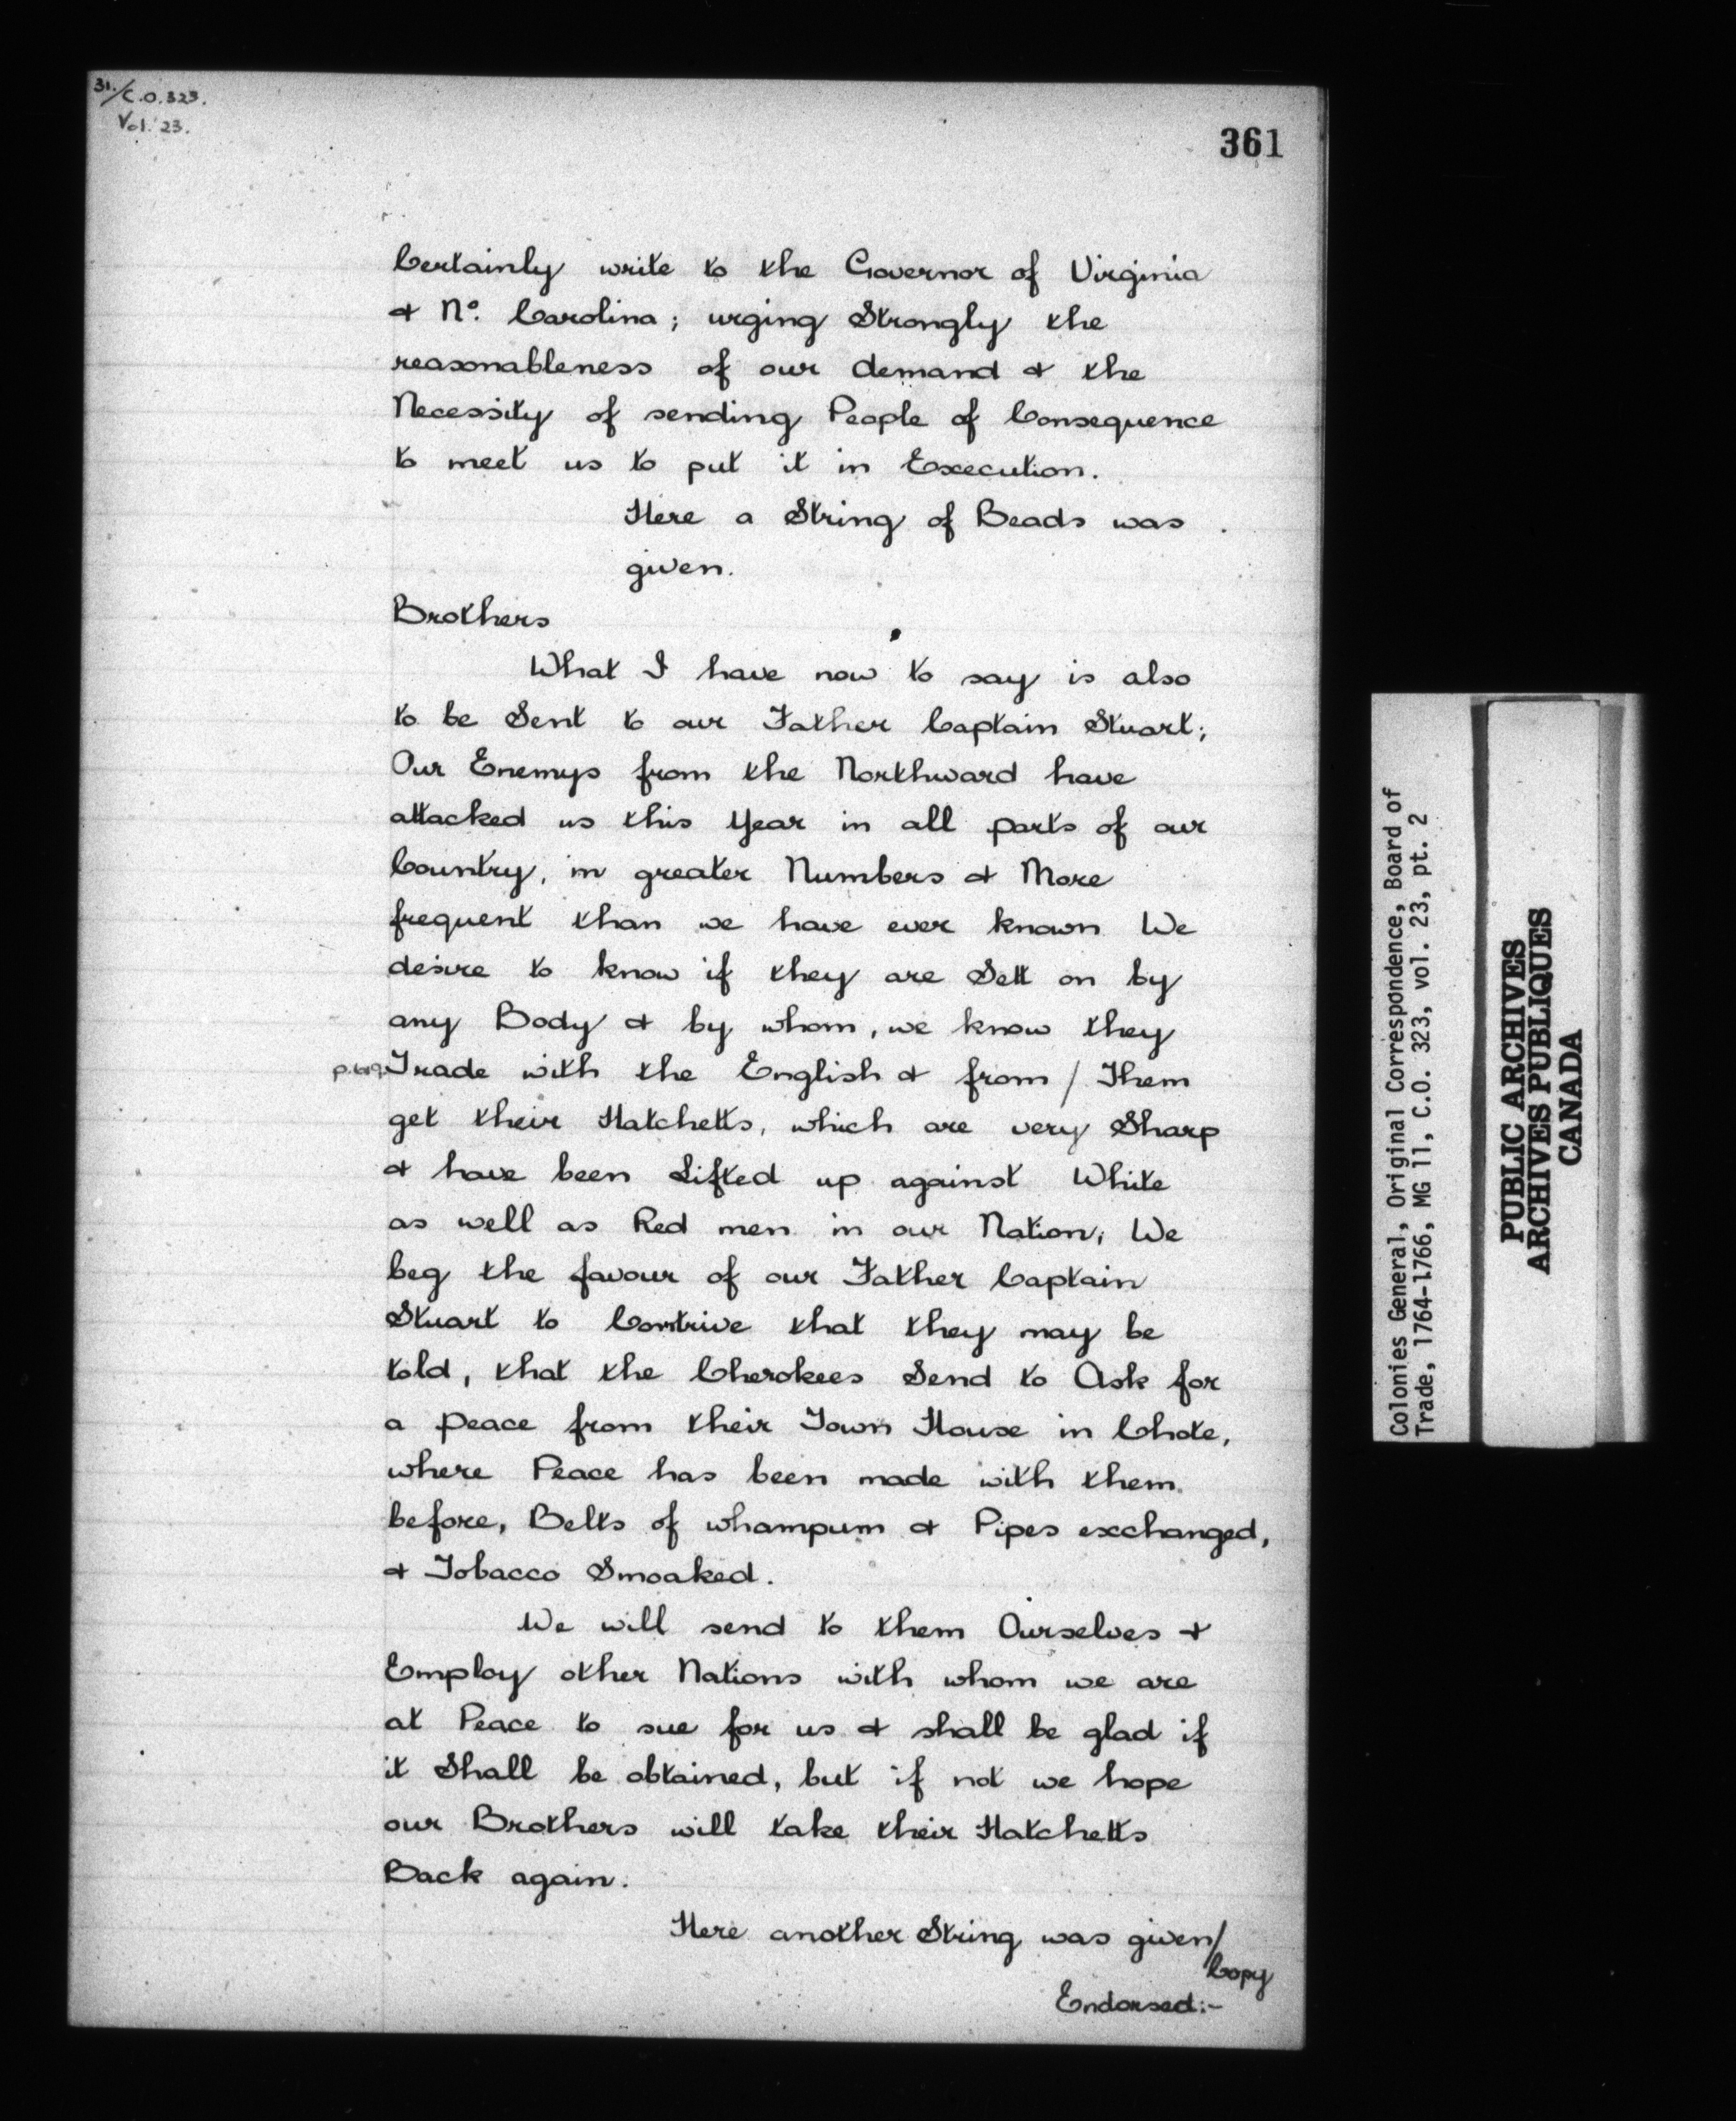 31./C.O.323.
Vol. 23.
361
Certainly write to the Governor of Virginia
& No. Carolina; urging Strongly the
reasonableness of our demand & the
Necessity of sending People of Consequence
to meet us to put it in Execution.
Here a String of Beads was
given.
Brothers
What I have now to say is also
to be Sent to our Father Captain Stuart;
Our Enemys from the Northward have
attacked us this Year in all parts of our
Country, in greater Numbers & More
frequent than we have ever known We
desire to know if they are Sett on by
any Body & by whom, we know they
Trade with the English & from / Them
get their Hatchetts, which are very Sharp
& have been Lifted up against White
as well as Red men in our Nation; We
beg the favour of our Father Captain
Stuart to Contrive that they may be
told, that the Cherokees Send to Ask for
a peace from their Town House in Chote,
where Peace has been made with them
before, Belts of whampum & Pipes exchanged,
& Tobacco Smoaked.
We will send to them Ourselves &
Employ other Nations with whom we are
at Peace to sue for us & shall be glad if
it Shall be obtained, but if not we hope
our Brothers will take their Hatchetts
Back again.
Here another String was given/
Copy
Endorsed:-
Colonies General, Original Correspondence, Board of
Trade, 1764-1766, MG 11, C.O. 323, vol. 23, pt. 2
PUBLIC ARCHIVES
ARCHIVES PUBLIQUES
CANADA